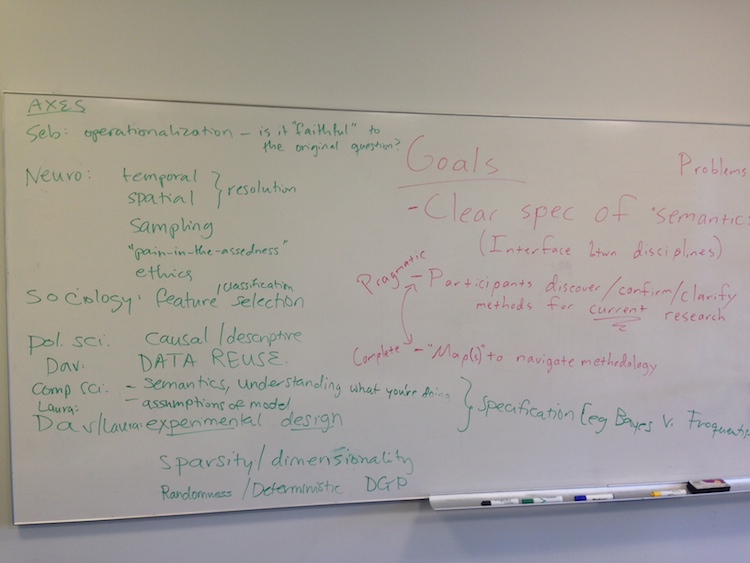 AXES
Seb: operationalization – is it "faithful" to
the original question?
Neuro: temporal
spatial } resolution
sampling
"pain-in-the-assedness"
ethics
Sociology: feature /classification selection
pol. sci: causal/descriptive
Dav: DATA REUSE.
comp sci: – semantics, understanding what you're doing
Laura: – assumptions of model
} specification (eg Bayes v. Frequentis
Dav/Laura: experimental design
sparsity/dimensionality
Randomness/Deterministic DGP
Goals
- Clear spec of "semantics
(Interface btwn disciplines)
Pragmatic – Participants discover/confirm/clarify
methods for current research
Complete – "Map(s)" to navigate methodology
Problems